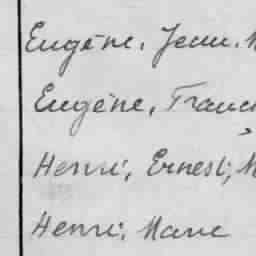 Eugène, Jean, M
Eugène, Franc
Henri, Ernest, M
Henri, Marie